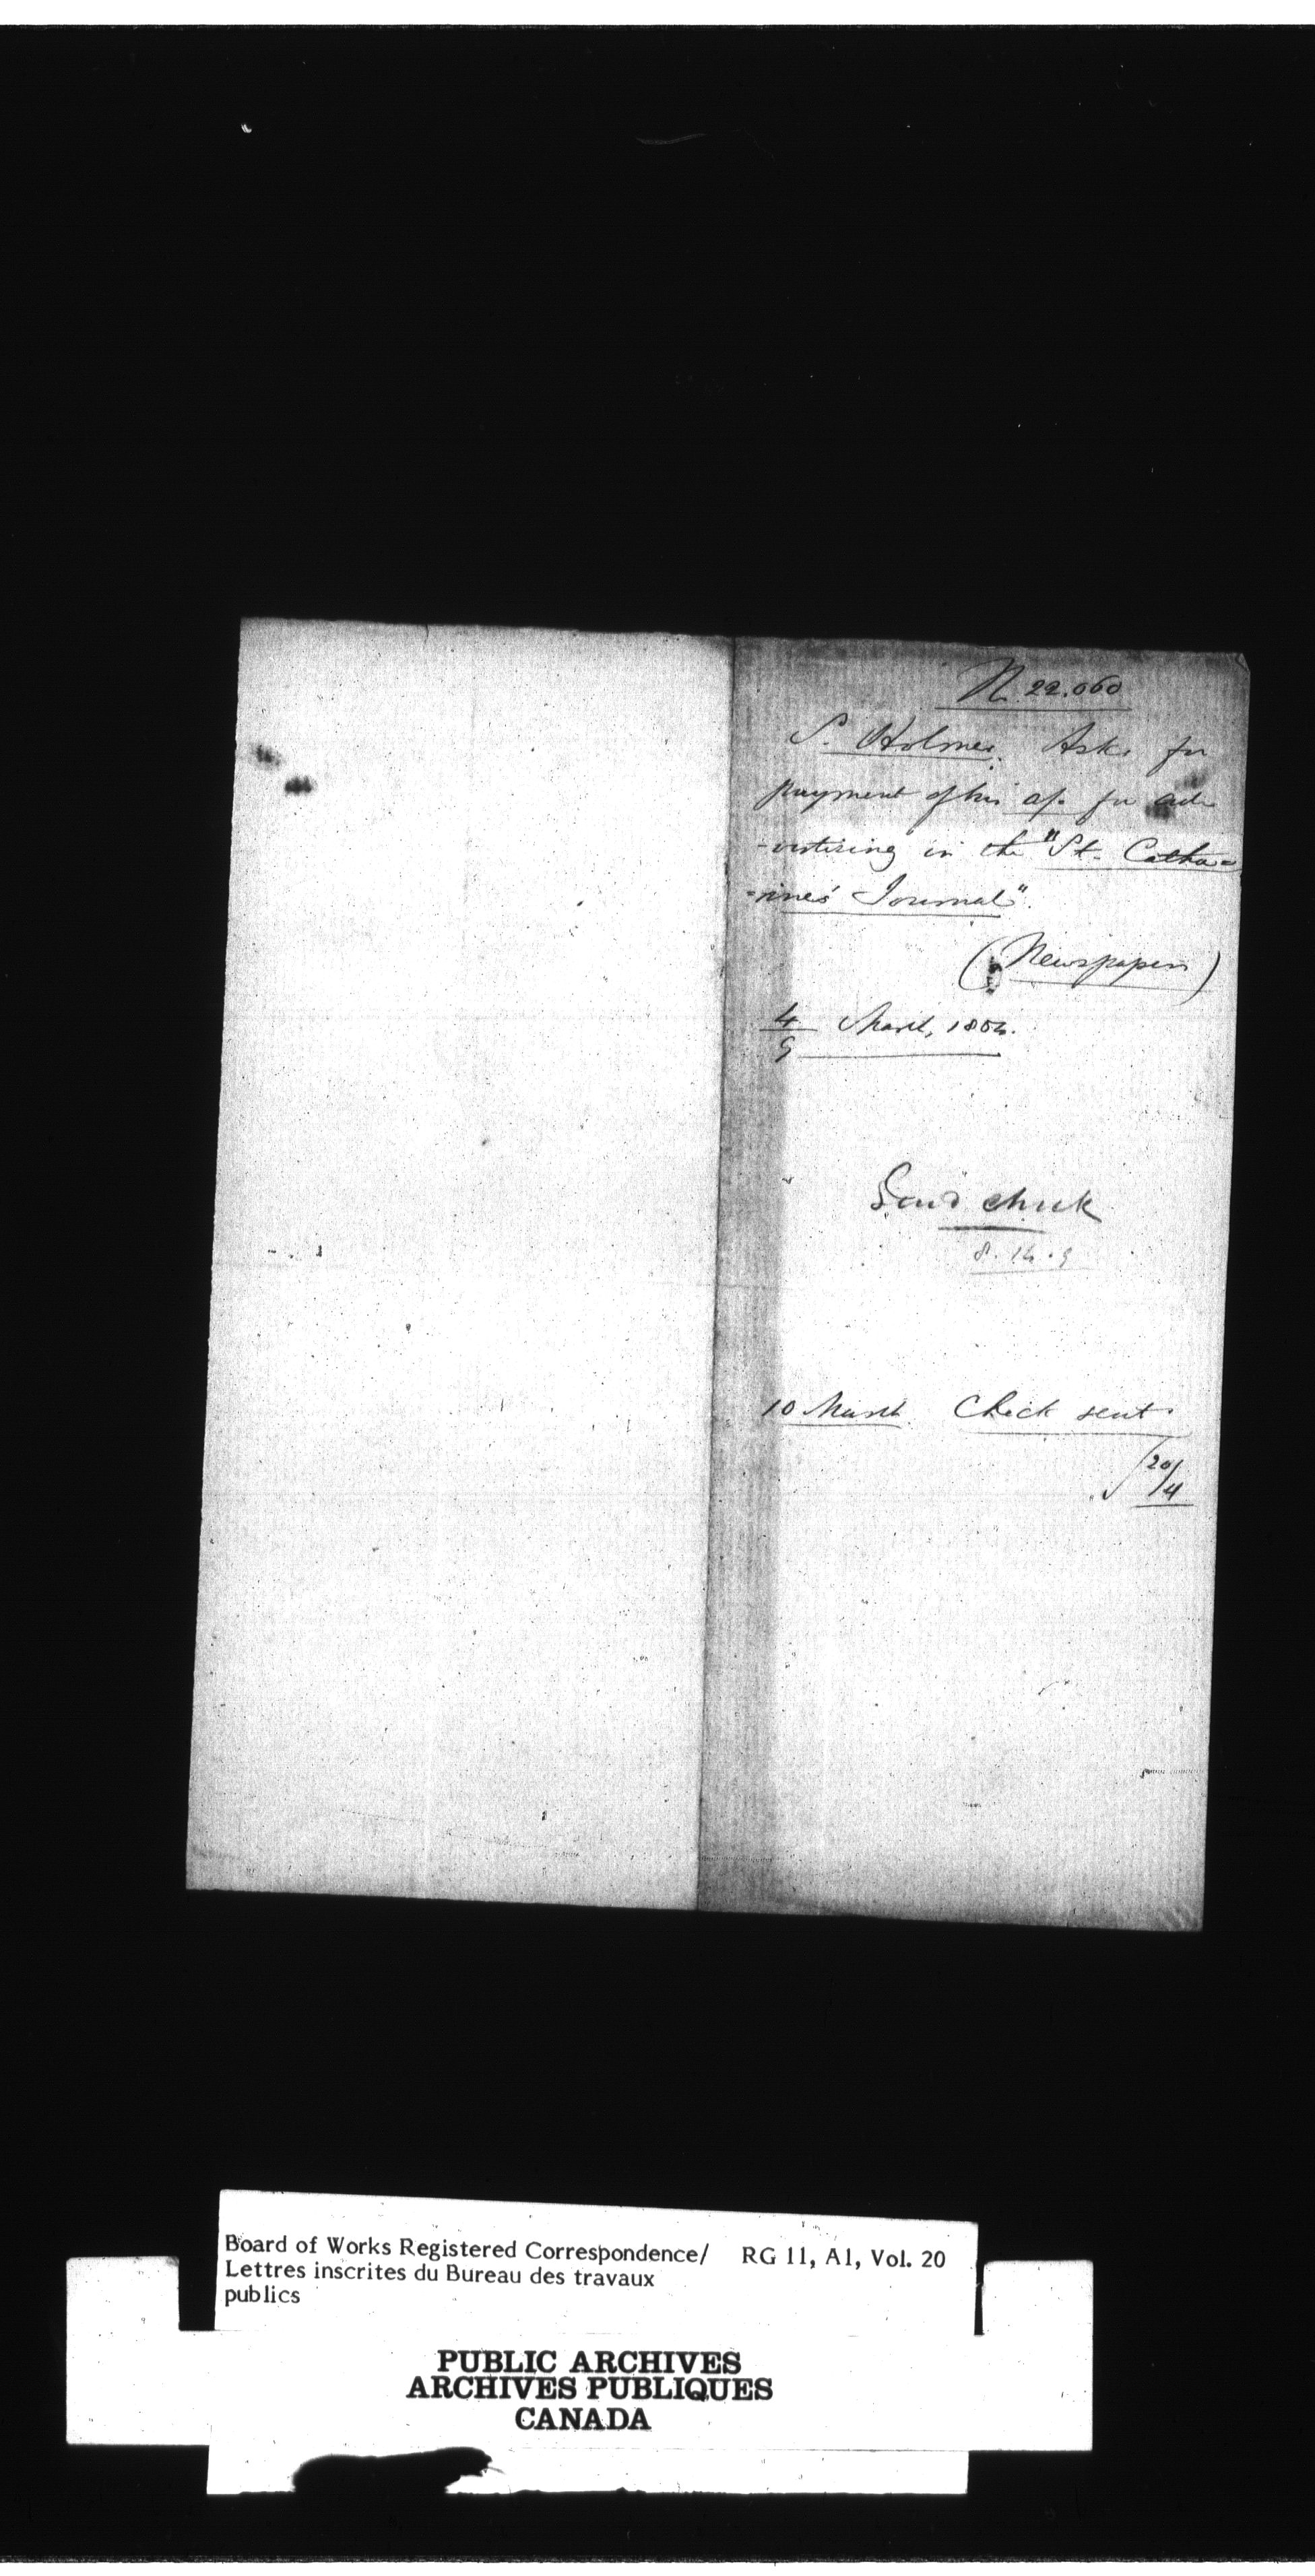 N. 22.060
S. Holmes. Asks for
payment of his a/c for adv
-ertising in the "St. Catha=
=rine's Journal".
(Newspapers)
4/9 March, 1854.
Send check
8.14.9
10 March. Check sent
20/4
Board of Works Registered Correspondence/ RG 11, A1, Vol. 20
Lettres inscrites du Bureau des travaux
publics
PUBLIC ARCHIVES
ARCHIVES PUBLIQUES
CANADA